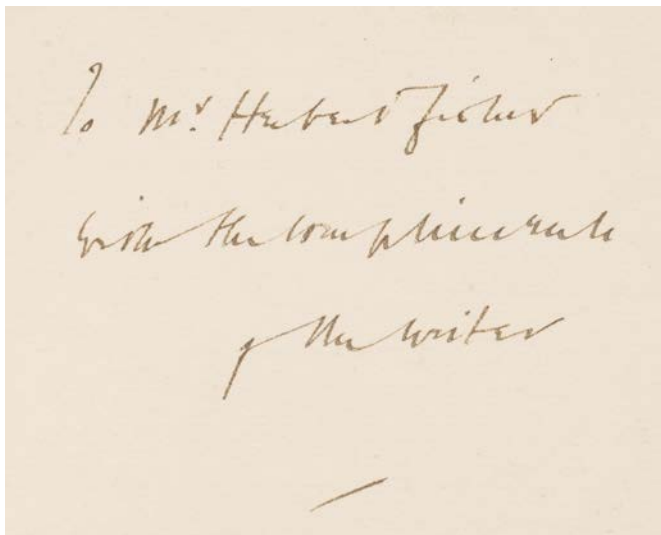 To Mr. Herbert Fisher
with the compliments
of the writer